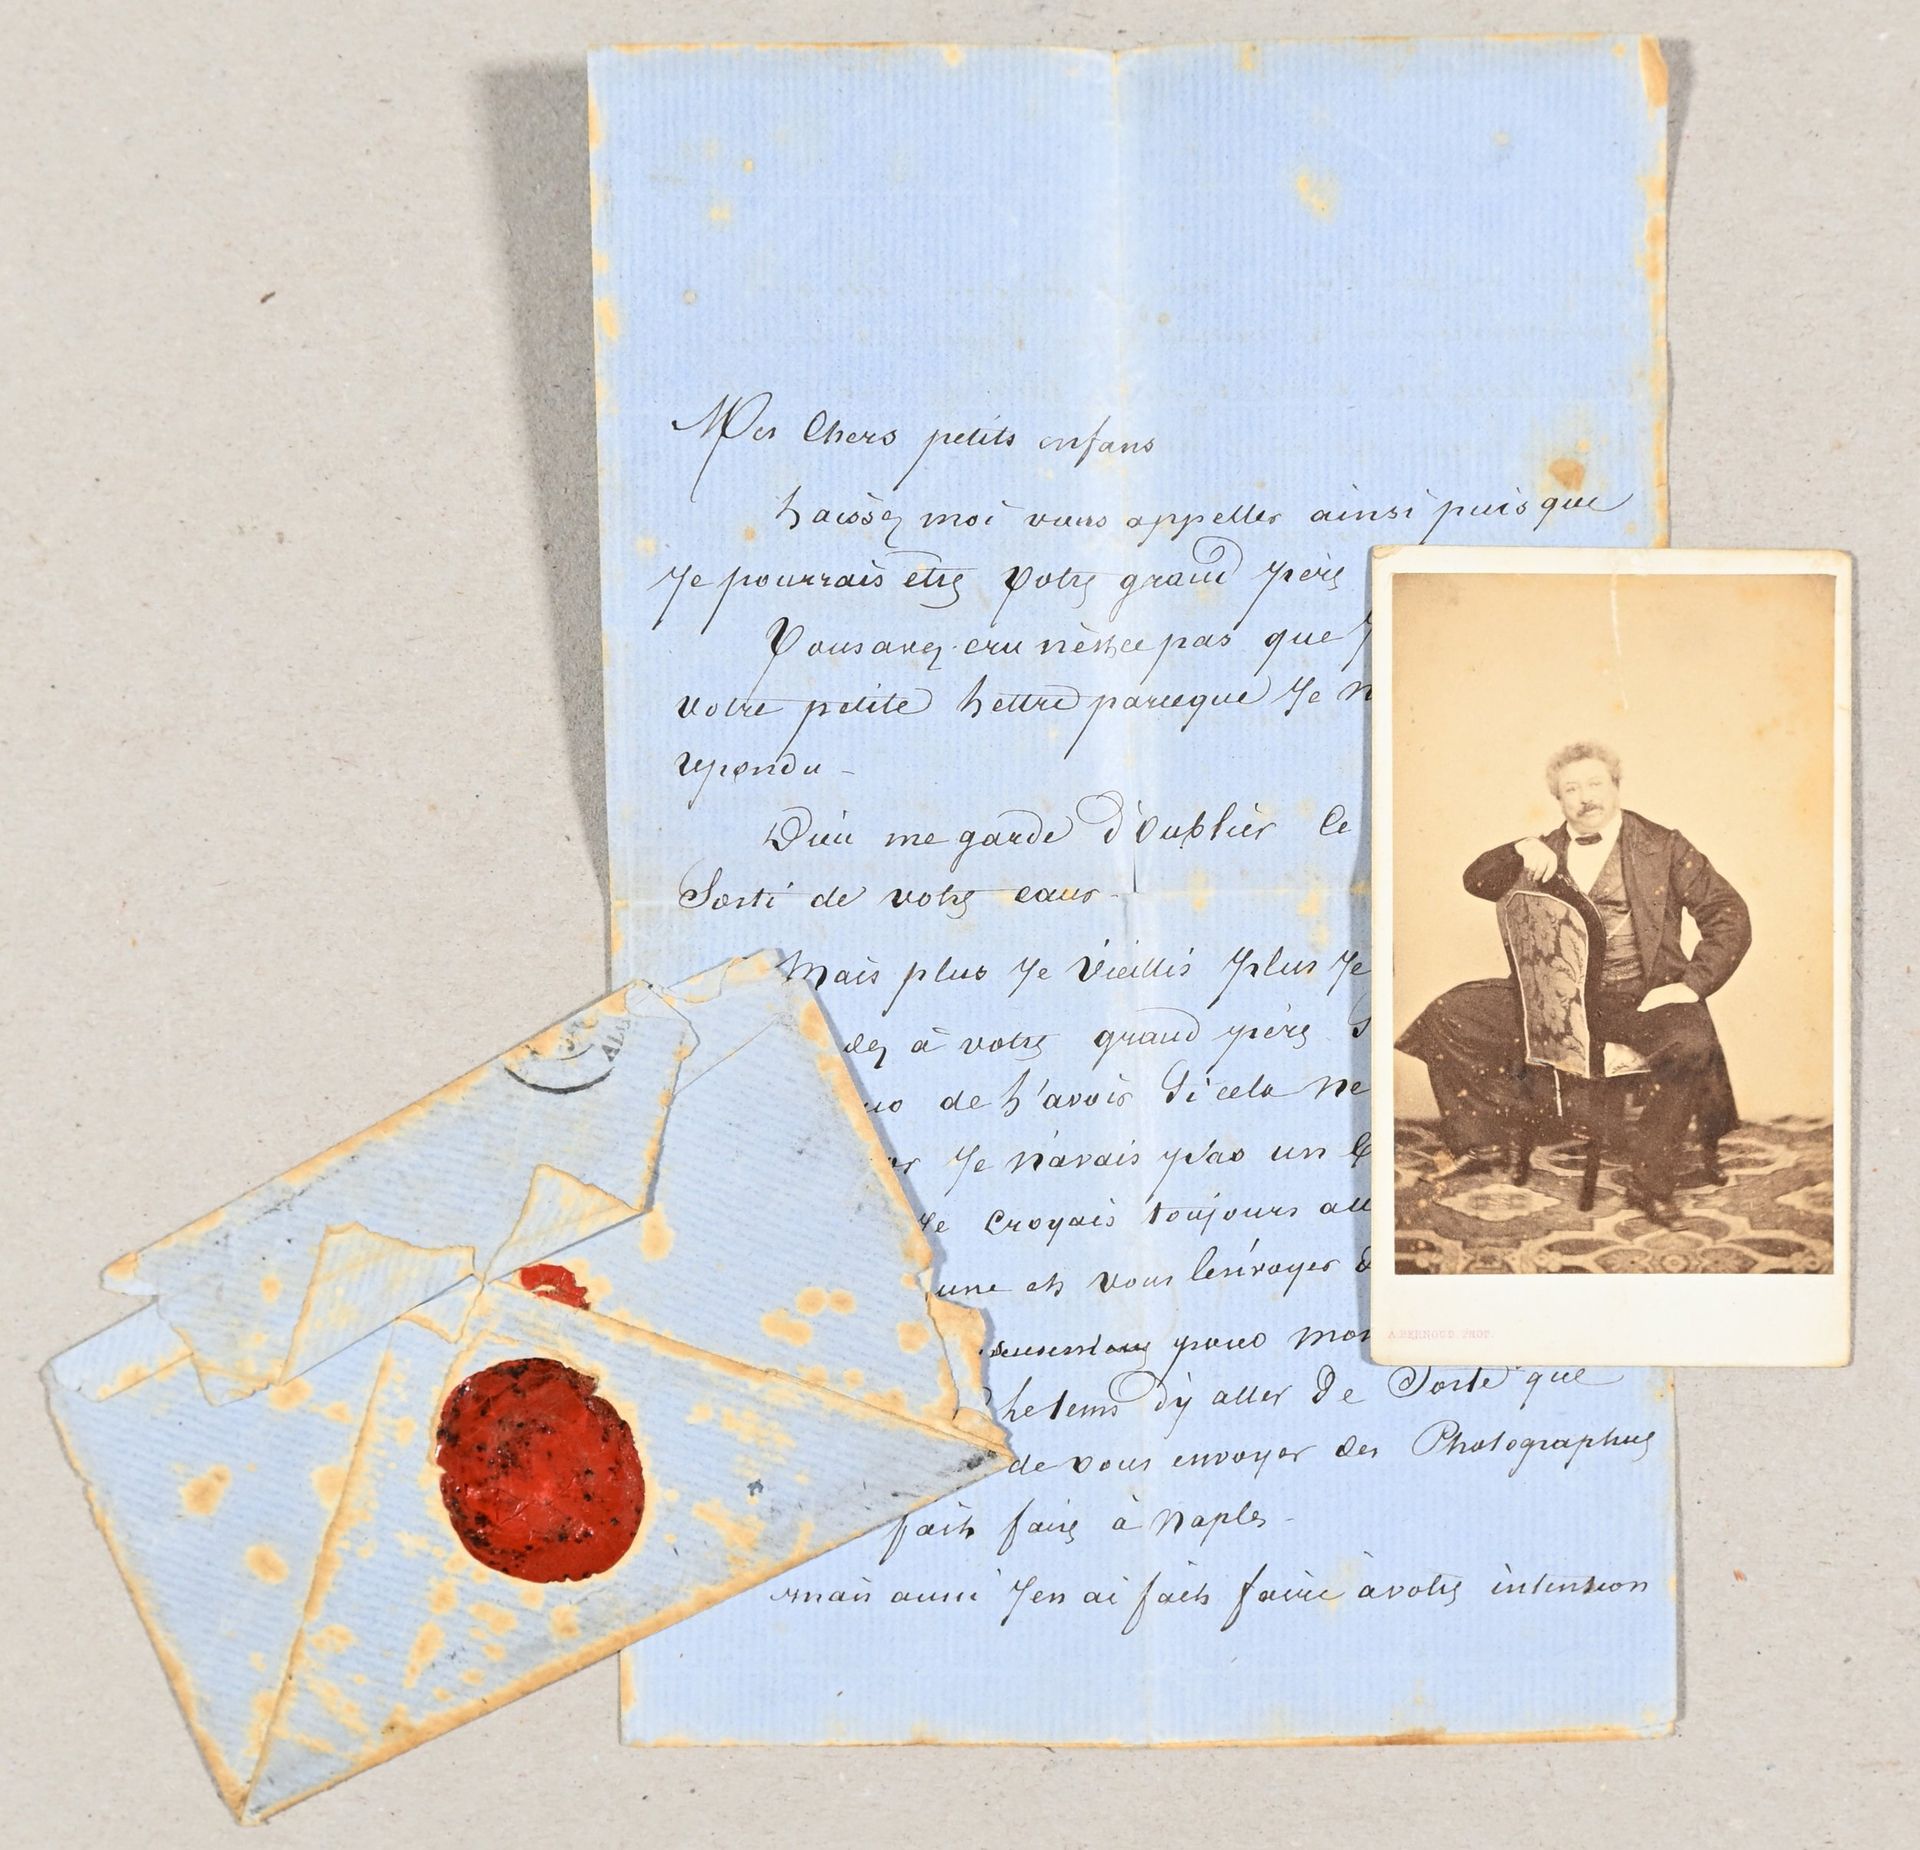 Mes Chers petits enfans
Laissez moi vous appeller ainsi puisque
Je pourrais etre Votre grand père
Vous avez cru n'èstce pas que J
votre petite Lettre parceque Je n
repondu -
Dieu me garde d'oublier Ce
Sorti de votre cœur -
Mais plus Je Vieillis Plus Je
dez à votre grand père
de L'avoir Si cela ne
Je n'avais pas un
Je Croyais toujours all
une et vous l'envoyer
pour mon
Letems d'y aller De Sorte que
de vous envoyer des Photographies
fait faire à Naples -
mais aussi J'en ai fait faire à votre intention
A. BERNOUD PHOT.